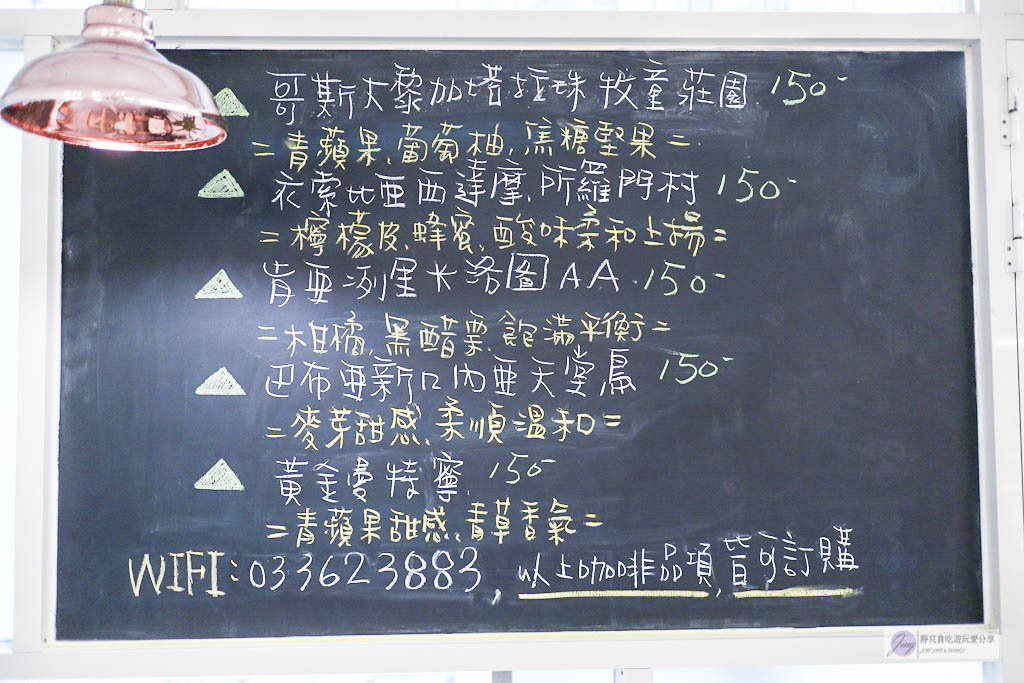 哥斯大黎加塔拉珠牧童莊園 150-
=青蘋果,葡萄柚,焦糖堅果=
衣索比亞西達摩,所羅門村 150-
=檸檬皮,蜂蜜,酸味柔和上揚=
肯亞冽里卡洛圖AA.150-
=柑橘,黑醋栗,飽滿平衡=
巴布亞新口內亞天堂鳥 150-
=麥芽甜感,柔順溫和=
黃金曼特寧 150-
=青蘋果甜感,青草香氣=
WIFI:033623883,以上咖啡品項,皆可訂購
靜兒貪吃遊玩愛分享